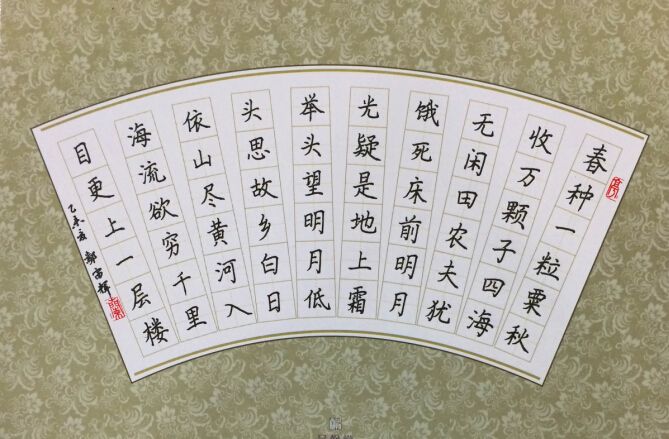 春种一粒粟秋
收万颗子四海
无闲田农夫犹
饿死床前明月
光疑是地上霜
举头望明月低
头思故乡白日
依山尽黄河入
海流欲穷千里
目更上一层楼
乙未夏